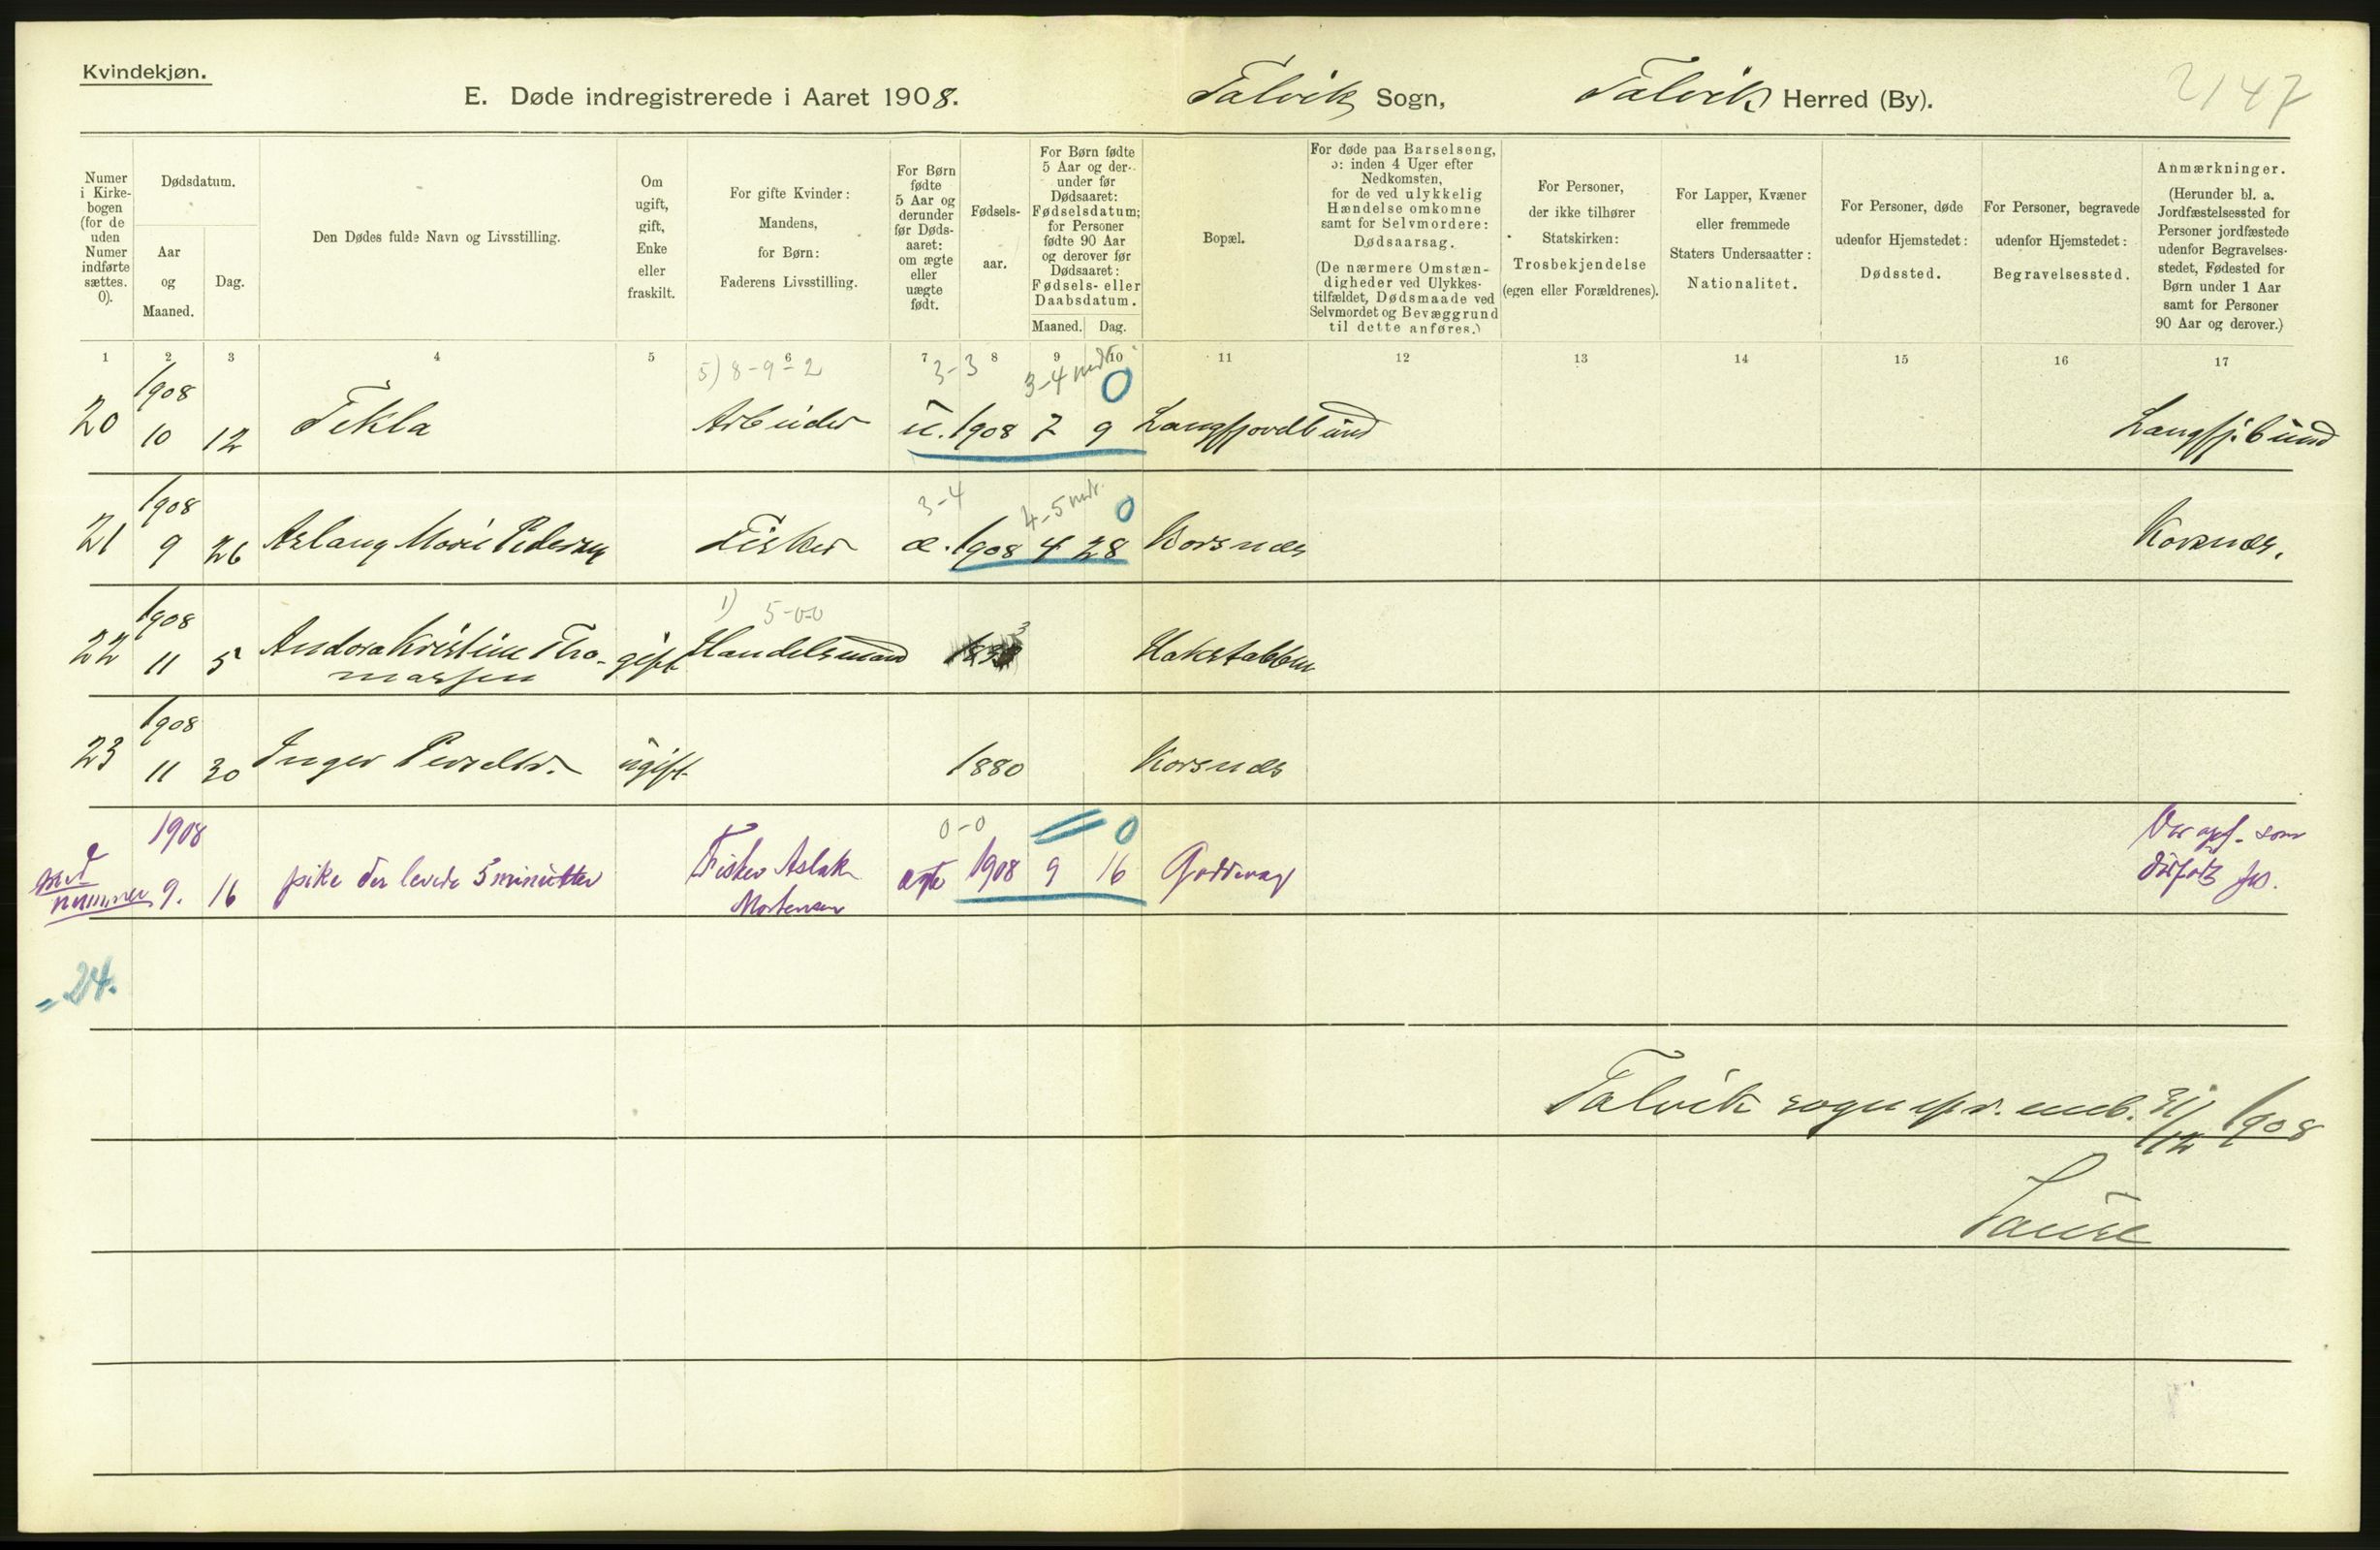 Kvindekjøn.
E. Døde indregistrerede i Aaret 1908. Talvik Sogn, Talvik Herred (By). 2147
Numer i Kirkebogen (for de uden Numer indførte sættes. 0).
Dødsdatum.
Aar og Maaned.
Dag.
Den Dødes fulde Navn og Livsstilling.
Om ugift, gift, Enke eller fraskilt.
For gifte Kvinder: Mandens, for Børn: Faderens Livsstilling.
For Børn fødte 5 Aar og derunder før Dødsaaret: om ægte eller uægte født.
Fødselsaar.
For Børn fødte 5 Aar og derunder før Dødsaaret: Fødselsdatum; for Personer fødte 90 Aar og derover før Dødsaaret: Fødsels- eller Daabsdatum.
Maaned. Dag.
Bopæl.
For døde paa Barselseng, ɔ: inden 4 Uger efter Nedkomsten, for de ved ulykkelig Hændelse omkomne samt for Selvmordere: Dødsaarsag. (De nærmere Omstændigheder ved Ulykkestilfældet, Dødsmaade ved Selvmordet og Bevæggrund til dette anføres.)
For Personer, der ikke tilhører Statskirken: Trosbekjendelse (egen eller Forældrenes).
For Lapper, Kvæner eller fremmede Staters Undersaatter: Nationalitet.
For Personer, døde udenfor Hjemstedet: Dødssted.
For Personer, begravede udenfor Hjemstedet: Begravelsessted.
Anmærkninger. (Herunder bl. a. Jordfæstelsessted for Personer jordfæstede udenfor Begravelsesstedet, Fødested for Børn under 1 Aar samt for Personer 90 Aar og derover.)
1 2 3 4 5 6 7 8 9 10 11 12 13 14 15 16 17
5) 8-9-2 3-3 3-4 mdr. 0
20 1908 10 12 Tekla Arbeider u. 1908 7 9 Langfjordbund Langfj.bund
3-4 4-5 mdr. 0
21 1908 9 26 Aslaug Marie Pedersen Fisker æ. 1908 4 28 Korsnes Korsnes.
1) 5-0-0
22 1908 11 5 Andora Kristine Thomassen gift Handelsmand Hakstabben
23 1908 11 30 Inger Persdtr. ugift 1880 Korsnes
0-0 0
nummer 1908 9. 16 pike der levede 5 minutter Fisker Aslak Mortensen ægte 1908 9 16 Var opf. som dødfødt
= 24.
Talvik sognepr. emb. 31/12 1908